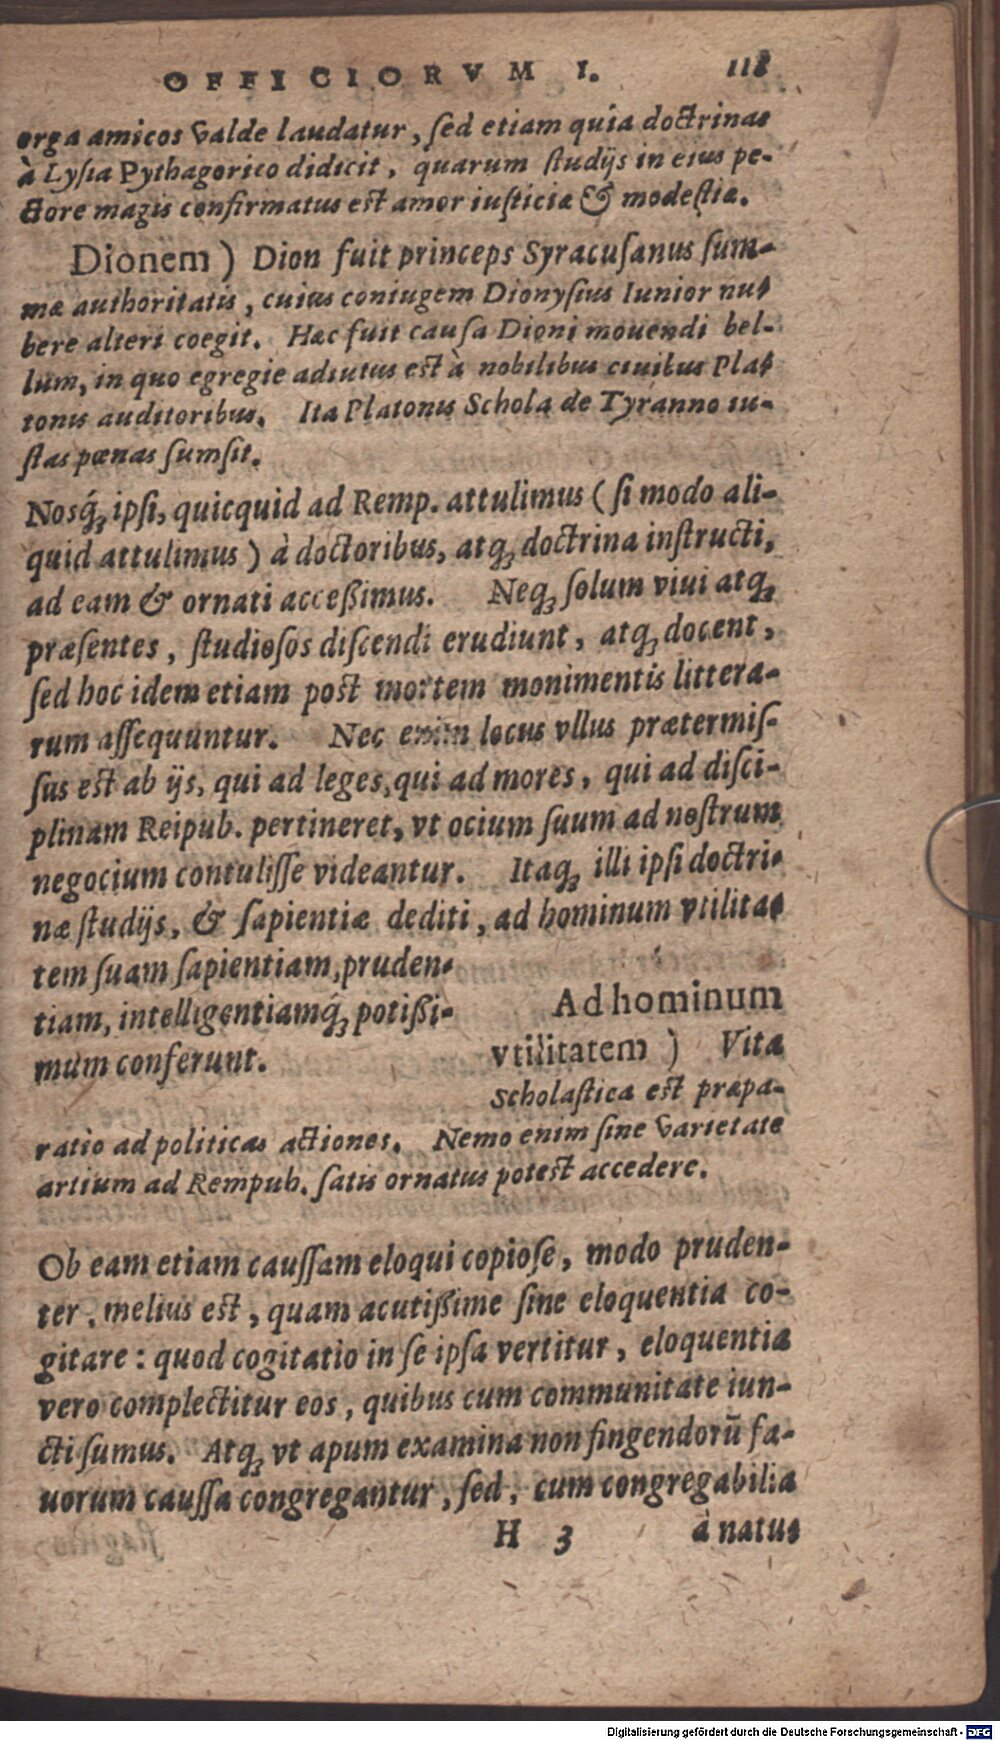 OFFICIORVM I. 118
erga amicos valde laudatur, sed etiam quia doctrinas
à Lysia Pythagorico didicit, quarum studijs in eius pe-
ctore magis confirmatus est amor iusticiæ & modestiæ.
Dionem) Dion fuit princeps Syracusanus sum-
mæ authoritatis, cuius coniugem Dionysius Iunior nu-
bere alteri coegit. Hæc fuit causa Dioni mouendi bel-
lum, in quo egregie adiutus est à nobilibus ciuibus Pla-
tonis auditoribus. Ita Platonis Schola de Tyranno iu-
stas pœnas sumsit.
Nosq́; ipsi, quicquid ad Remp. attulimus (si modo ali-
quid attulimus) à doctoribus, atq; doctrina instructi,
ad eam & ornati acceßimus. Neq; solum viui atq;
præsentes, studiosos discendi erudiunt, atq; docent,
sed hoc idem etiam post mortem monimentis littera-
rum assequuntur. Nec enim locus vllus prætermis-
sus est ab ijs, qui ad leges, qui ad mores, qui ad disci-
plinam Reipub. pertineret, vt ocium suum ad nostrum
negocium contulisse videantur. Itaq; illi ipsi doctri-
næ studijs, & sapientiæ dediti, ad hominum vtilita-
tem suam sapientiam, pruden-
tiam, intelligentiamq́; potißi-
mùm conferunt.
Ad hominum
vtilitatem) Vita
Scholastica est præpa-
ratio ad politicas actiones. Nemo enim sine varietate
artium ad Rempub. satis ornatus potest accedere.
Ob eam etiam caussam eloqui copiose, modo pruden-
ter, melius est, quam acutißime sine eloquentia co-
gitare: quod cogitatio in se ipsa vertitur, eloquentia
vero complectitur eos, quibus cum communitate iun-
cti sumus. Atq; vt apum examina non fingendorū fa-
uorum caussa congregantur, sed, cum congregabilia
H 3 à natus
Digitalisierung gefördert durch die Deutsche Forschungsgemeinschaft - DFG